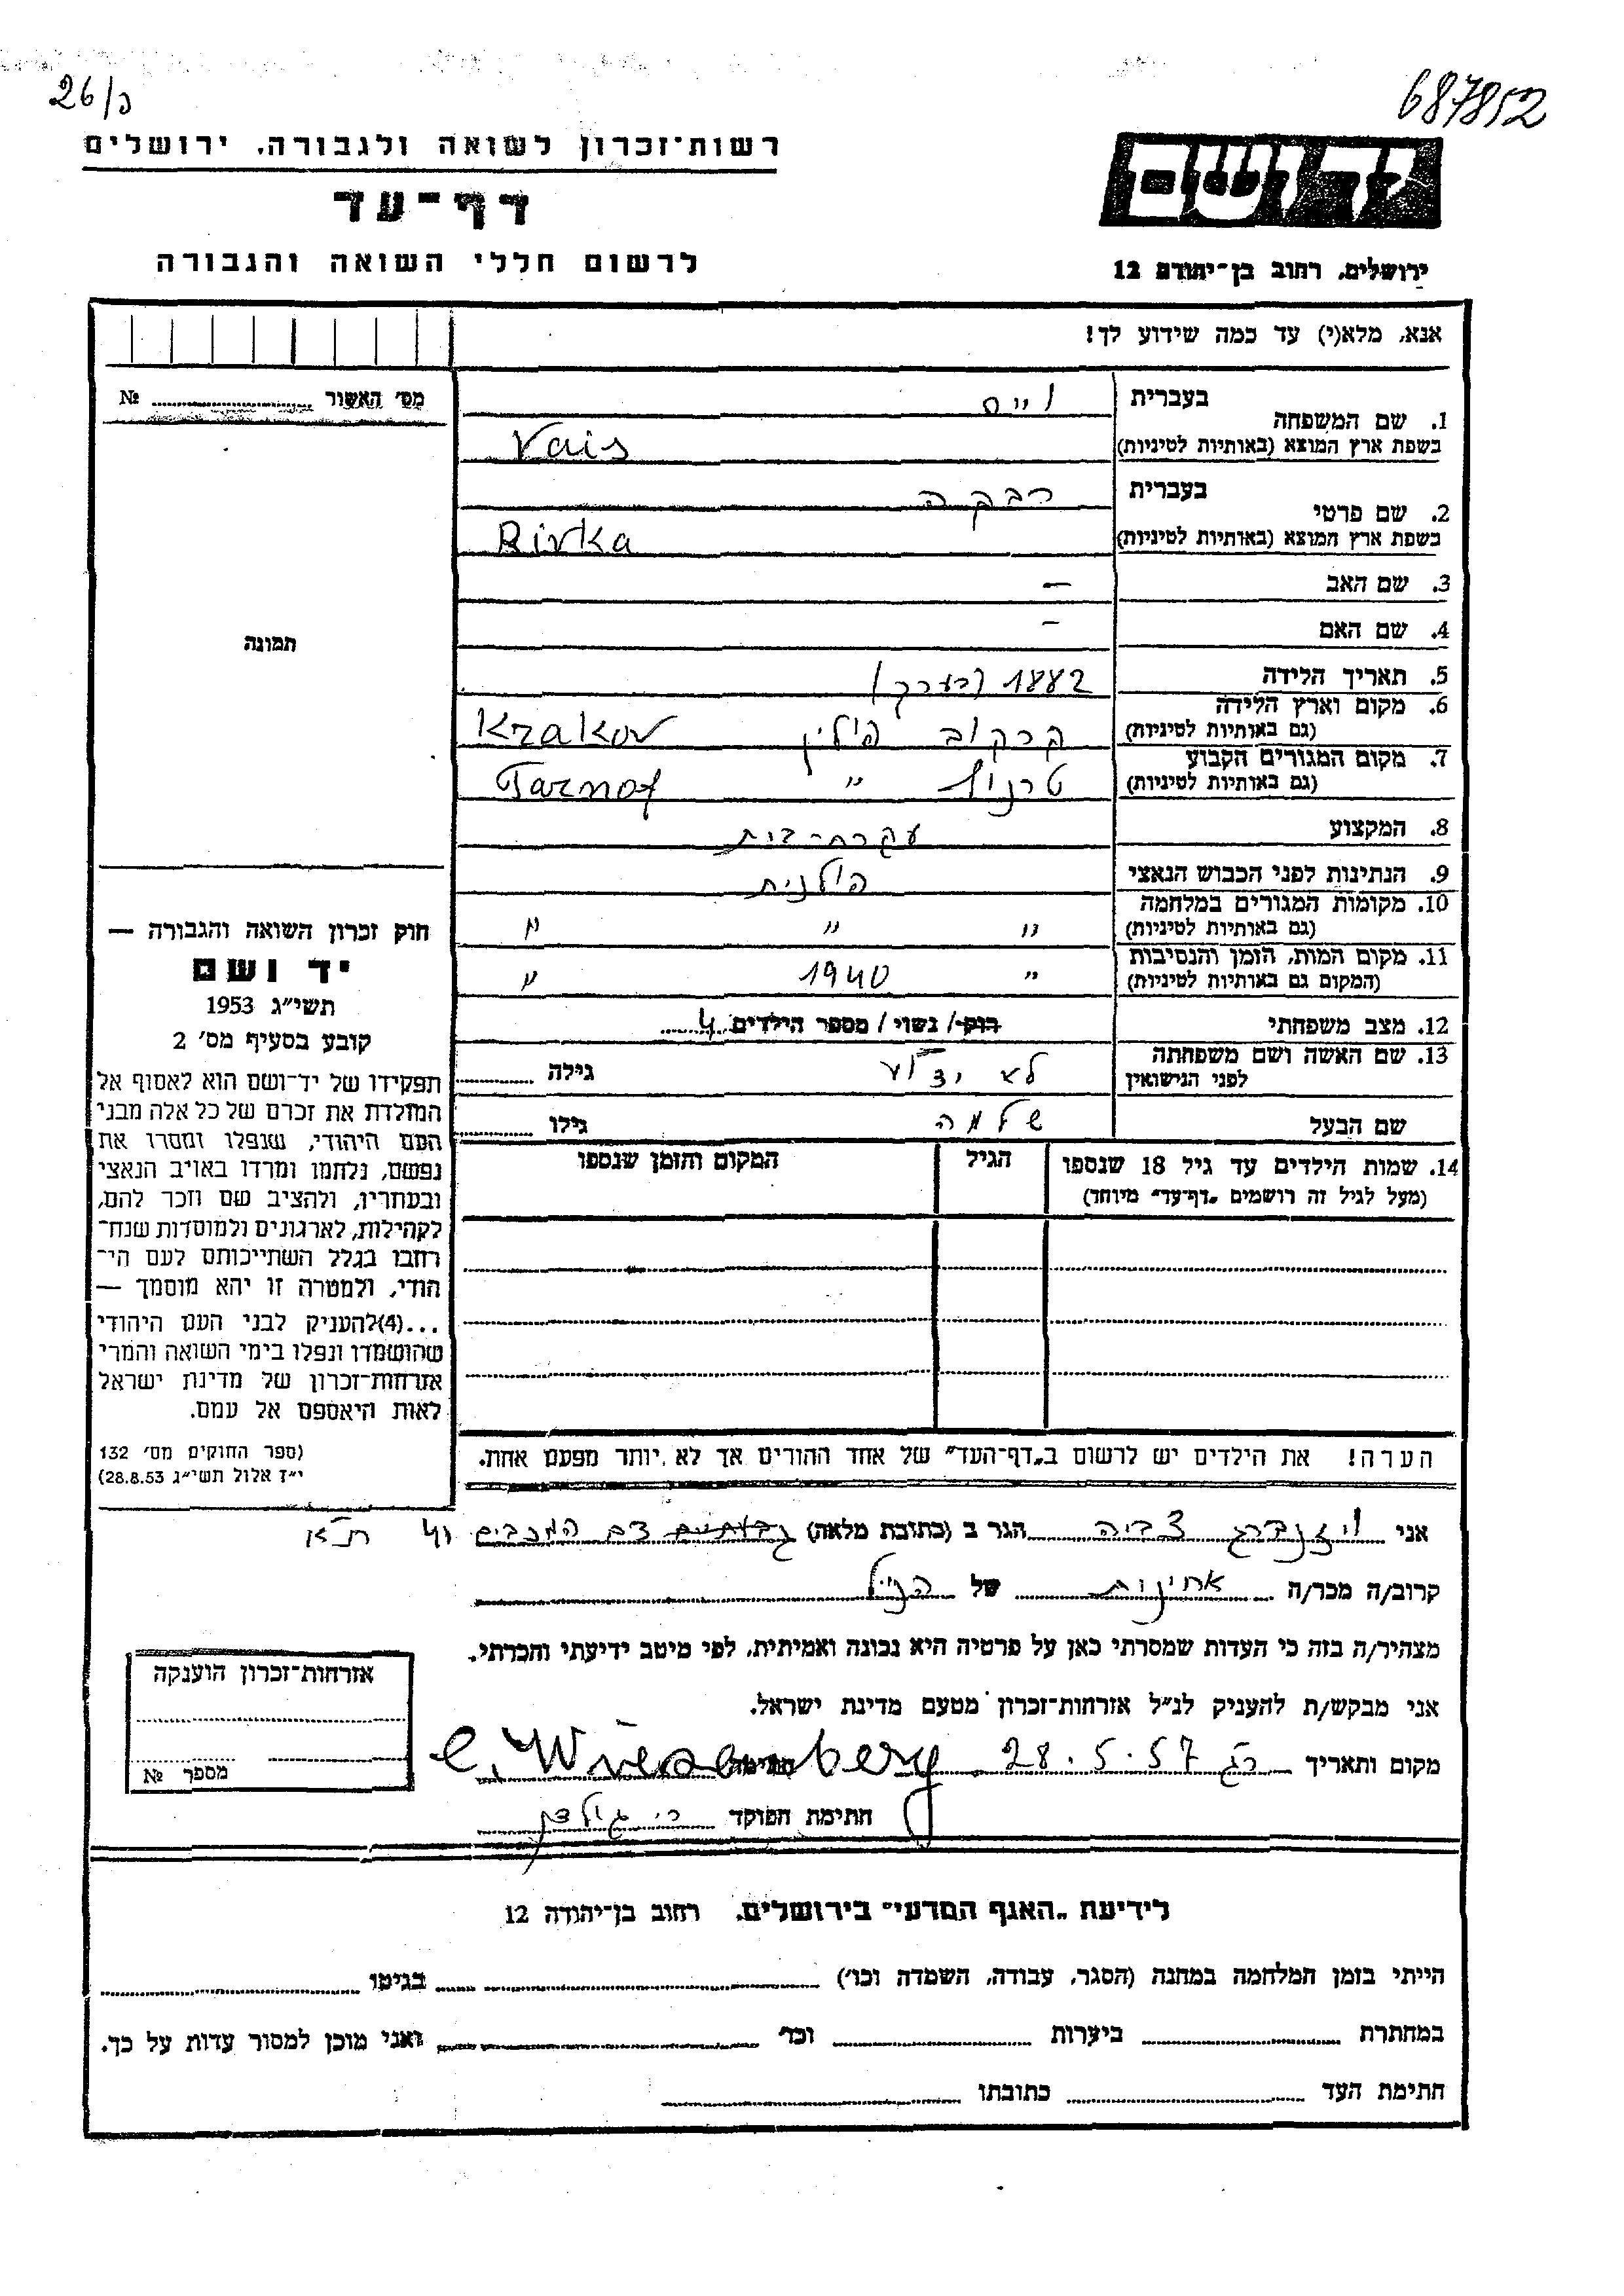 26/כ
687852
רשות־זכרון לשואה ולגבורה, ירושלים
דף־עד
לרשום חללי השואה והגבורה
יד ושם
ירושלים, רחוב בן־יהודה 12
אנא, מלא(י) עד כמה שידוע לך!
מס׳ האשור № ..........
תמונה
1. שם המשפחה
בעברית
וייס
בשפת ארץ המוצא (באותיות לטיניות)
Vais
2. שם פרטי
בעברית
רבקה
בשפת ארץ המוצא (באותיות לטיניות)
Rivka
3. שם האב —
4. שם האם —
5. תאריך הלידה 1882 (בערך)
6. מקום וארץ הלידה
(גם באותיות לטיניות)
קרקוב פולין Krakov
7. מקום המגורים הקבוע
(גם באותיות לטיניות)
טרנוף ״ Tarnof
8. המקצוע עקרת־בית
9. הנתינות לפני הכבוש הנאצי פולנית
10. מקומות המגורים במלחמה
(גם באותיות לטיניות)
״ ״ ״
11. מקום המות, הזמן והנסיבות
(המקום גם באותיות לטיניות)
״ 1940 ״
12. מצב משפחתי רוק/ נשוי / מספר הילדים 4
13. שם האשה ושם משפחתה
לפני הנישואין
לא ידוע גילה ..........
שם הבעל שלמה גילו ..........
14. שמות הילדים עד גיל 18 שנספו
(מעל לגיל זה רושמים „דף־עד״ מיוחד)
הגיל
המקום והזמן שנספו
חוק זכרון השואה והגבורה —
יד ושם
תשי״ג 1953
קובע בסעיף מס׳ 2
תפקידו של יד־ושם הוא לאסוף אל
המולדת את זכרם של כל אלה מבני
העם היהודי, שנפלו ומסרו את
נפשם, נלחמו ומרדו באויב הנאצי
ובעוזריו, ולהציב שם וזכר להם,
לקהילות, לארגונים ולמוסדות שנח־
רחבו בגלל השתייכותם לעם הי־
הודי, ולמטרה זו יהא מוסמך —
...(4)להעניק לבני העם היהודי
שהושמדו ונפלו בימי השואה והמרי
אזרחות־זכרון של מדינת ישראל
לאות היאספם אל עמם.
(ספר החוקים מס׳ 132
י״ז אלול תשי״ג 28.8.53)
הערה! את הילדים יש לרשום ב„דף־העד״ של אחד ההורים אך לא יותר מפעם אחת.
אני ויזנברג צביה הגר ב (כתובת מלאה) גבעתיים דם המכבים 41 ת״א
קרוב/ה מכר/ה אחינות של הנ״ל
מצהיר/ה בזה כי העדות שמסרתי כאן על פרטיה היא נכונה ואמיתית, לפי מיטב ידיעתי והכרתי.
אני מבקש/ת להעניק לנ״ל אזרחות־זכרון מטעם מדינת ישראל.
מקום ותאריך רג 28.5.57 חתימה C. Wiesenberg
חתימת הפוקד
אזרחות־זכרון הוענקה
מספר №
לידיעת „האגף המדעי״ בירושלים, רחוב בן־יהודה 12
הייתי בזמן המלחמה במחנה (הסגר, עבודה, השמדה וכו׳) .......... בגיטו ..........
במחתרת .......... ביערות .......... וכו׳ .......... ואני מוכן למסור עדות על כך.
חתימת העד .......... כתובתו ..........